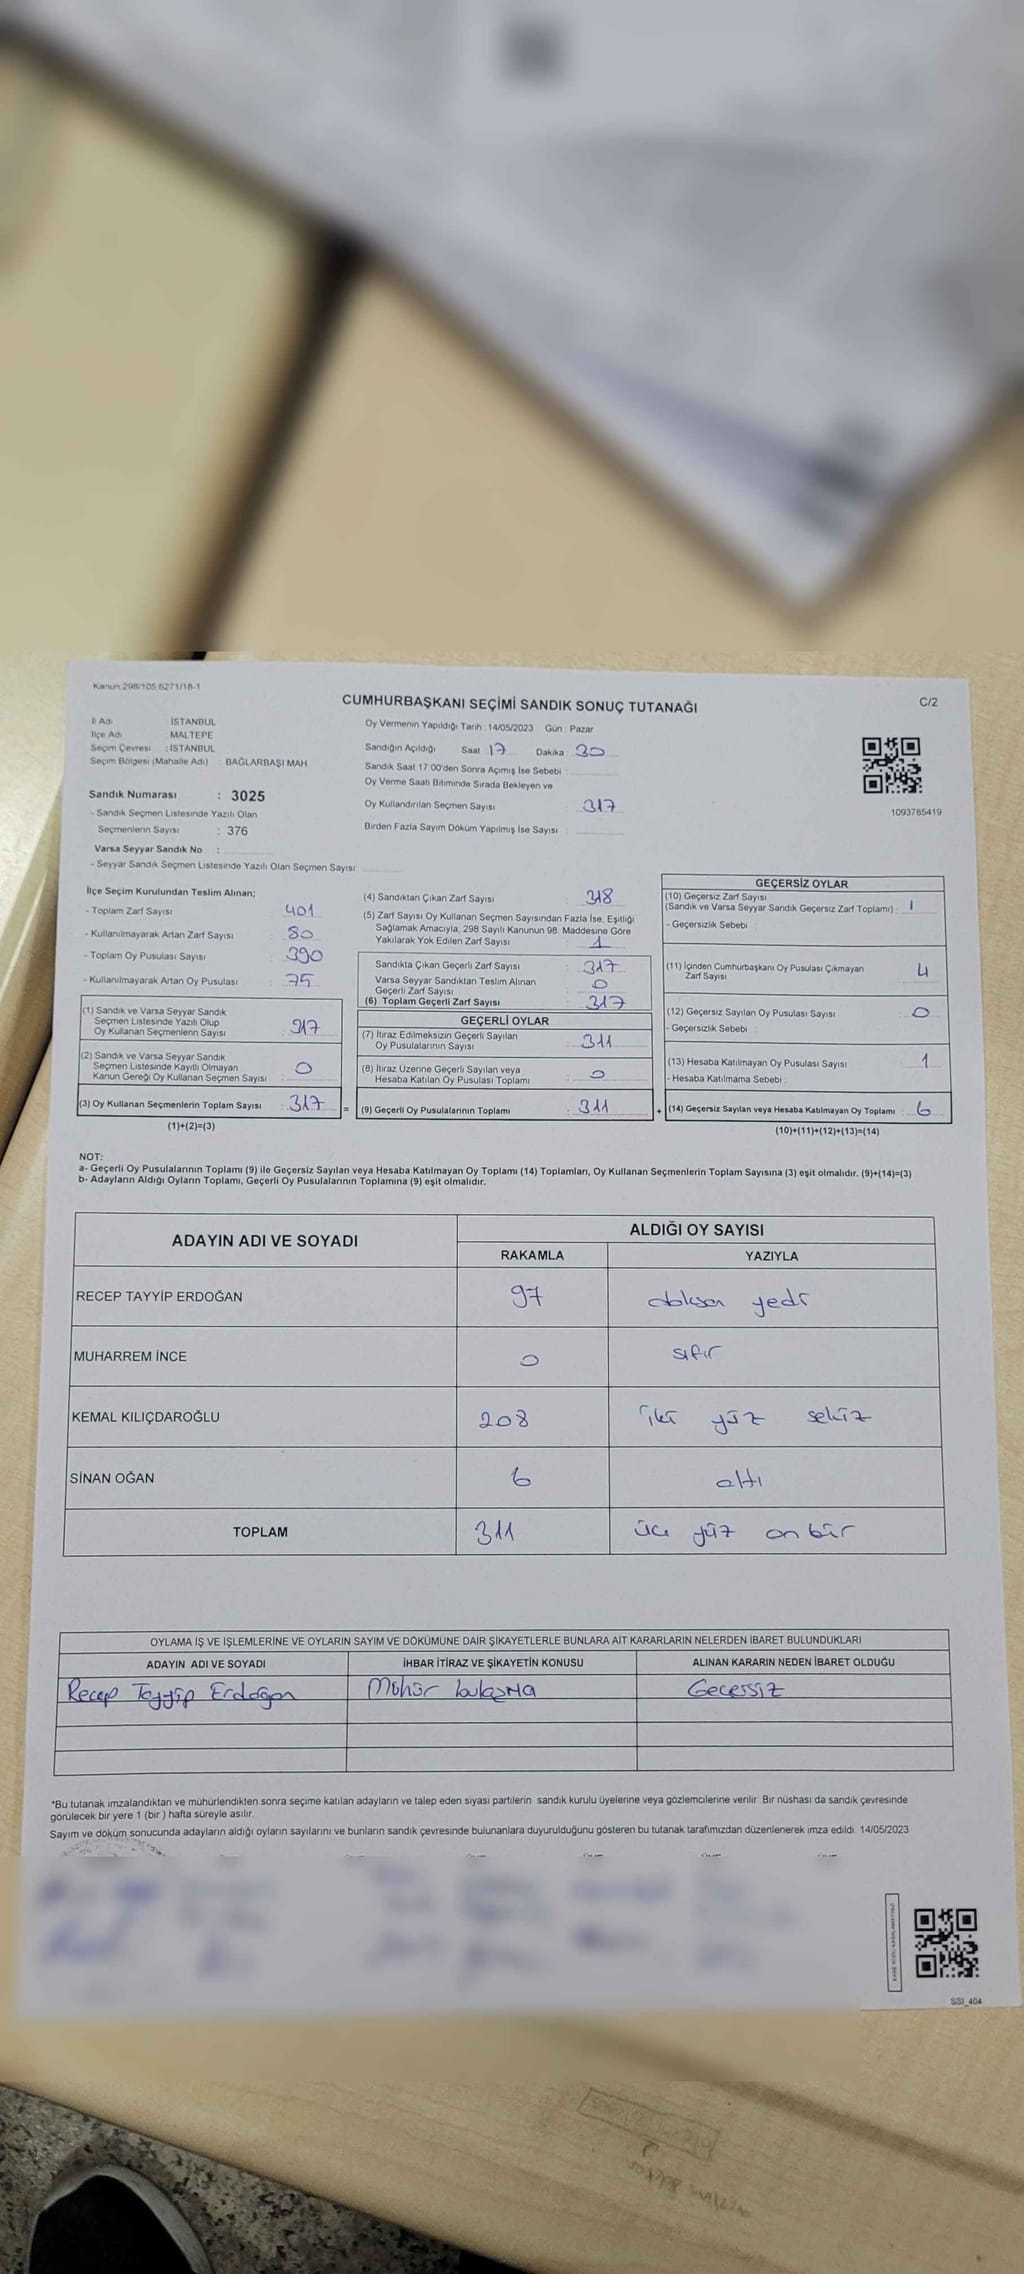 Kanun 298/105 6271/18-1
C/2
CUMHURBAŞKANI SEÇİMİ SANDIK SONUÇ TUTANAĞI
İl Adı İSTANBUL
İlçe Adı MALTEPE
Seçim Çevresi : İSTANBUL
Seçim Bölgesi (Mahalle Adı) : BAĞLARBAŞI MAH
Sandık Numarası : 3025
- Sandık Seçmen Listesinde Yazılı Olan
Seçmenlerin Sayısı : 376
Varsa Seyyar Sandık No :
- Seyyar Sandık Seçmen Listesinde Yazılı Olan Seçmen Sayısı:
Oy Vermenin Yapıldığı Tarih 14/05/2023 Gün : Pazar
Sandığın Açıldığı Saat 17 Dakika 30
Sandık Saat 17:00'den Sonra Açılmış İse Sebebi
Oy Verme Saati Bitiminde Sırada Bekleyen ve
Oy Kullandırılan Seçmen Sayısı : 317
Birden Fazla Sayım Döküm Yapılmış İse Sayısı
1093785419
İlçe Seçim Kurulundan Teslim Alınan;
- Toplam Zarf Sayısı : 401
- Kullanılmayarak Artan Zarf Sayısı : 80
- Toplam Oy Pusulası Sayısı : 390
- Kullanılmayarak Artan Oy Pusulası : 75
(1) Sandık ve Varsa Seyyar Sandık
Seçmen Listesinde Yazılı Olup
Oy Kullanan Seçmenlerin Sayısı : 317
(2) Sandık ve Varsa Seyyar Sandık
Seçmen Listesinde Kayıtlı Olmayan
Kanun Gereği Oy Kullanan Seçmen Sayısı : 0
(3) Oy Kullanan Seçmenlerin Toplam Sayısı : 317 =
(1)+(2)=(3)
(4) Sandıktan Çıkan Zarf Sayısı : 318
(5) Zarf Sayısı Oy Kullanan Seçmen Sayısından Fazla İse, Eşitliği
Sağlamak Amacıyla, 298 Sayılı Kanunun 98. Maddesine Göre
Yakılarak Yok Edilen Zarf Sayısı : 1
Sandıkta Çıkan Geçerli Zarf Sayısı : 317
Varsa Seyyar Sandıktan Teslim Alınan
Geçerli Zarf Sayısı : 0
(6) Toplam Geçerli Zarf Sayısı : 317
GEÇERLİ OYLAR
(7) İtiraz Edilmeksizin Geçerli Sayılan
Oy Pusulalarının Sayısı : 311
(8) İtiraz Üzerine Geçerli Sayılan veya
Hesaba Katılan Oy Pusulası Toplamı : 0
(9) Geçerli Oy Pusulalarının Toplamı : 311 +
GEÇERSİZ OYLAR
(10) Geçersiz Zarf Sayısı
(Sandık ve Varsa Seyyar Sandık Geçersiz Zarf Toplamı) : 1
- Geçersizlik Sebebi :
(11) İçinden Cumhurbaşkanı Oy Pusulası Çıkmayan
Zarf Sayısı : 4
(12) Geçersiz Sayılan Oy Pusulası Sayısı : 0
- Geçersizlik Sebebi :
(13) Hesaba Katılmayan Oy Pusulası Sayısı : 1
- Hesaba Katılmama Sebebi :
(14) Geçersiz Sayılan veya Hesaba Katılmayan Oy Toplamı : 6
(10)+(11)+(12)+(13)=(14)
NOT:
a- Geçerli Oy Pusulalarının Toplamı (9) ile Geçersiz Sayılan veya Hesaba Katılmayan Oy Toplamı (14) Toplamları, Oy Kullanan Seçmenlerin Toplam Sayısına (3) eşit olmalıdır. (9)+(14)=(3)
b- Adayların Aldığı Oyların Toplamı, Geçerli Oy Pusulalarının Toplamına (9) eşit olmalıdır.
ADAYIN ADI VE SOYADI ALDIĞI OY SAYISI
RAKAMLA YAZIYLA
RECEP TAYYİP ERDOĞAN 97 doksan yedi
MUHARREM İNCE 0 sıfır
KEMAL KILIÇDAROĞLU 208 iki yüz sekiz
SİNAN OĞAN 6 altı
TOPLAM 311 üç yüz on bir
OYLAMA İŞ VE İŞLEMLERİNE VE OYLARIN SAYIM VE DÖKÜMÜNE DAİR ŞİKAYETLERLE BUNLARA AİT KARARLARIN NELERDEN İBARET BULUNDUKLARI
ADAYIN ADI VE SOYADI İHBAR İTİRAZ VE ŞİKAYETİN KONUSU ALINAN KARARIN NEDEN İBARET OLDUĞU
Recep Tayyip Erdoğan Mühür bulaşma Geçersiz
*Bu tutanak imzalandıktan ve mühürlendikten sonra seçime katılan adayların ve talep eden siyasi partilerin sandık kurulu üyelerine veya gözlemcilerine verilir. Bir nüshası da sandık çevresinde
görülecek bir yere 1 (bir ) hafta süreyle asılır.
Sayım ve döküm sonucunda adayların aldığı oyların sayılarını ve bunların sandık çevresinde bulunanlara duyurulduğunu gösteren bu tutanak tarafımızdan düzenlenerek imza edildi. 14/05/2023
SSI_404